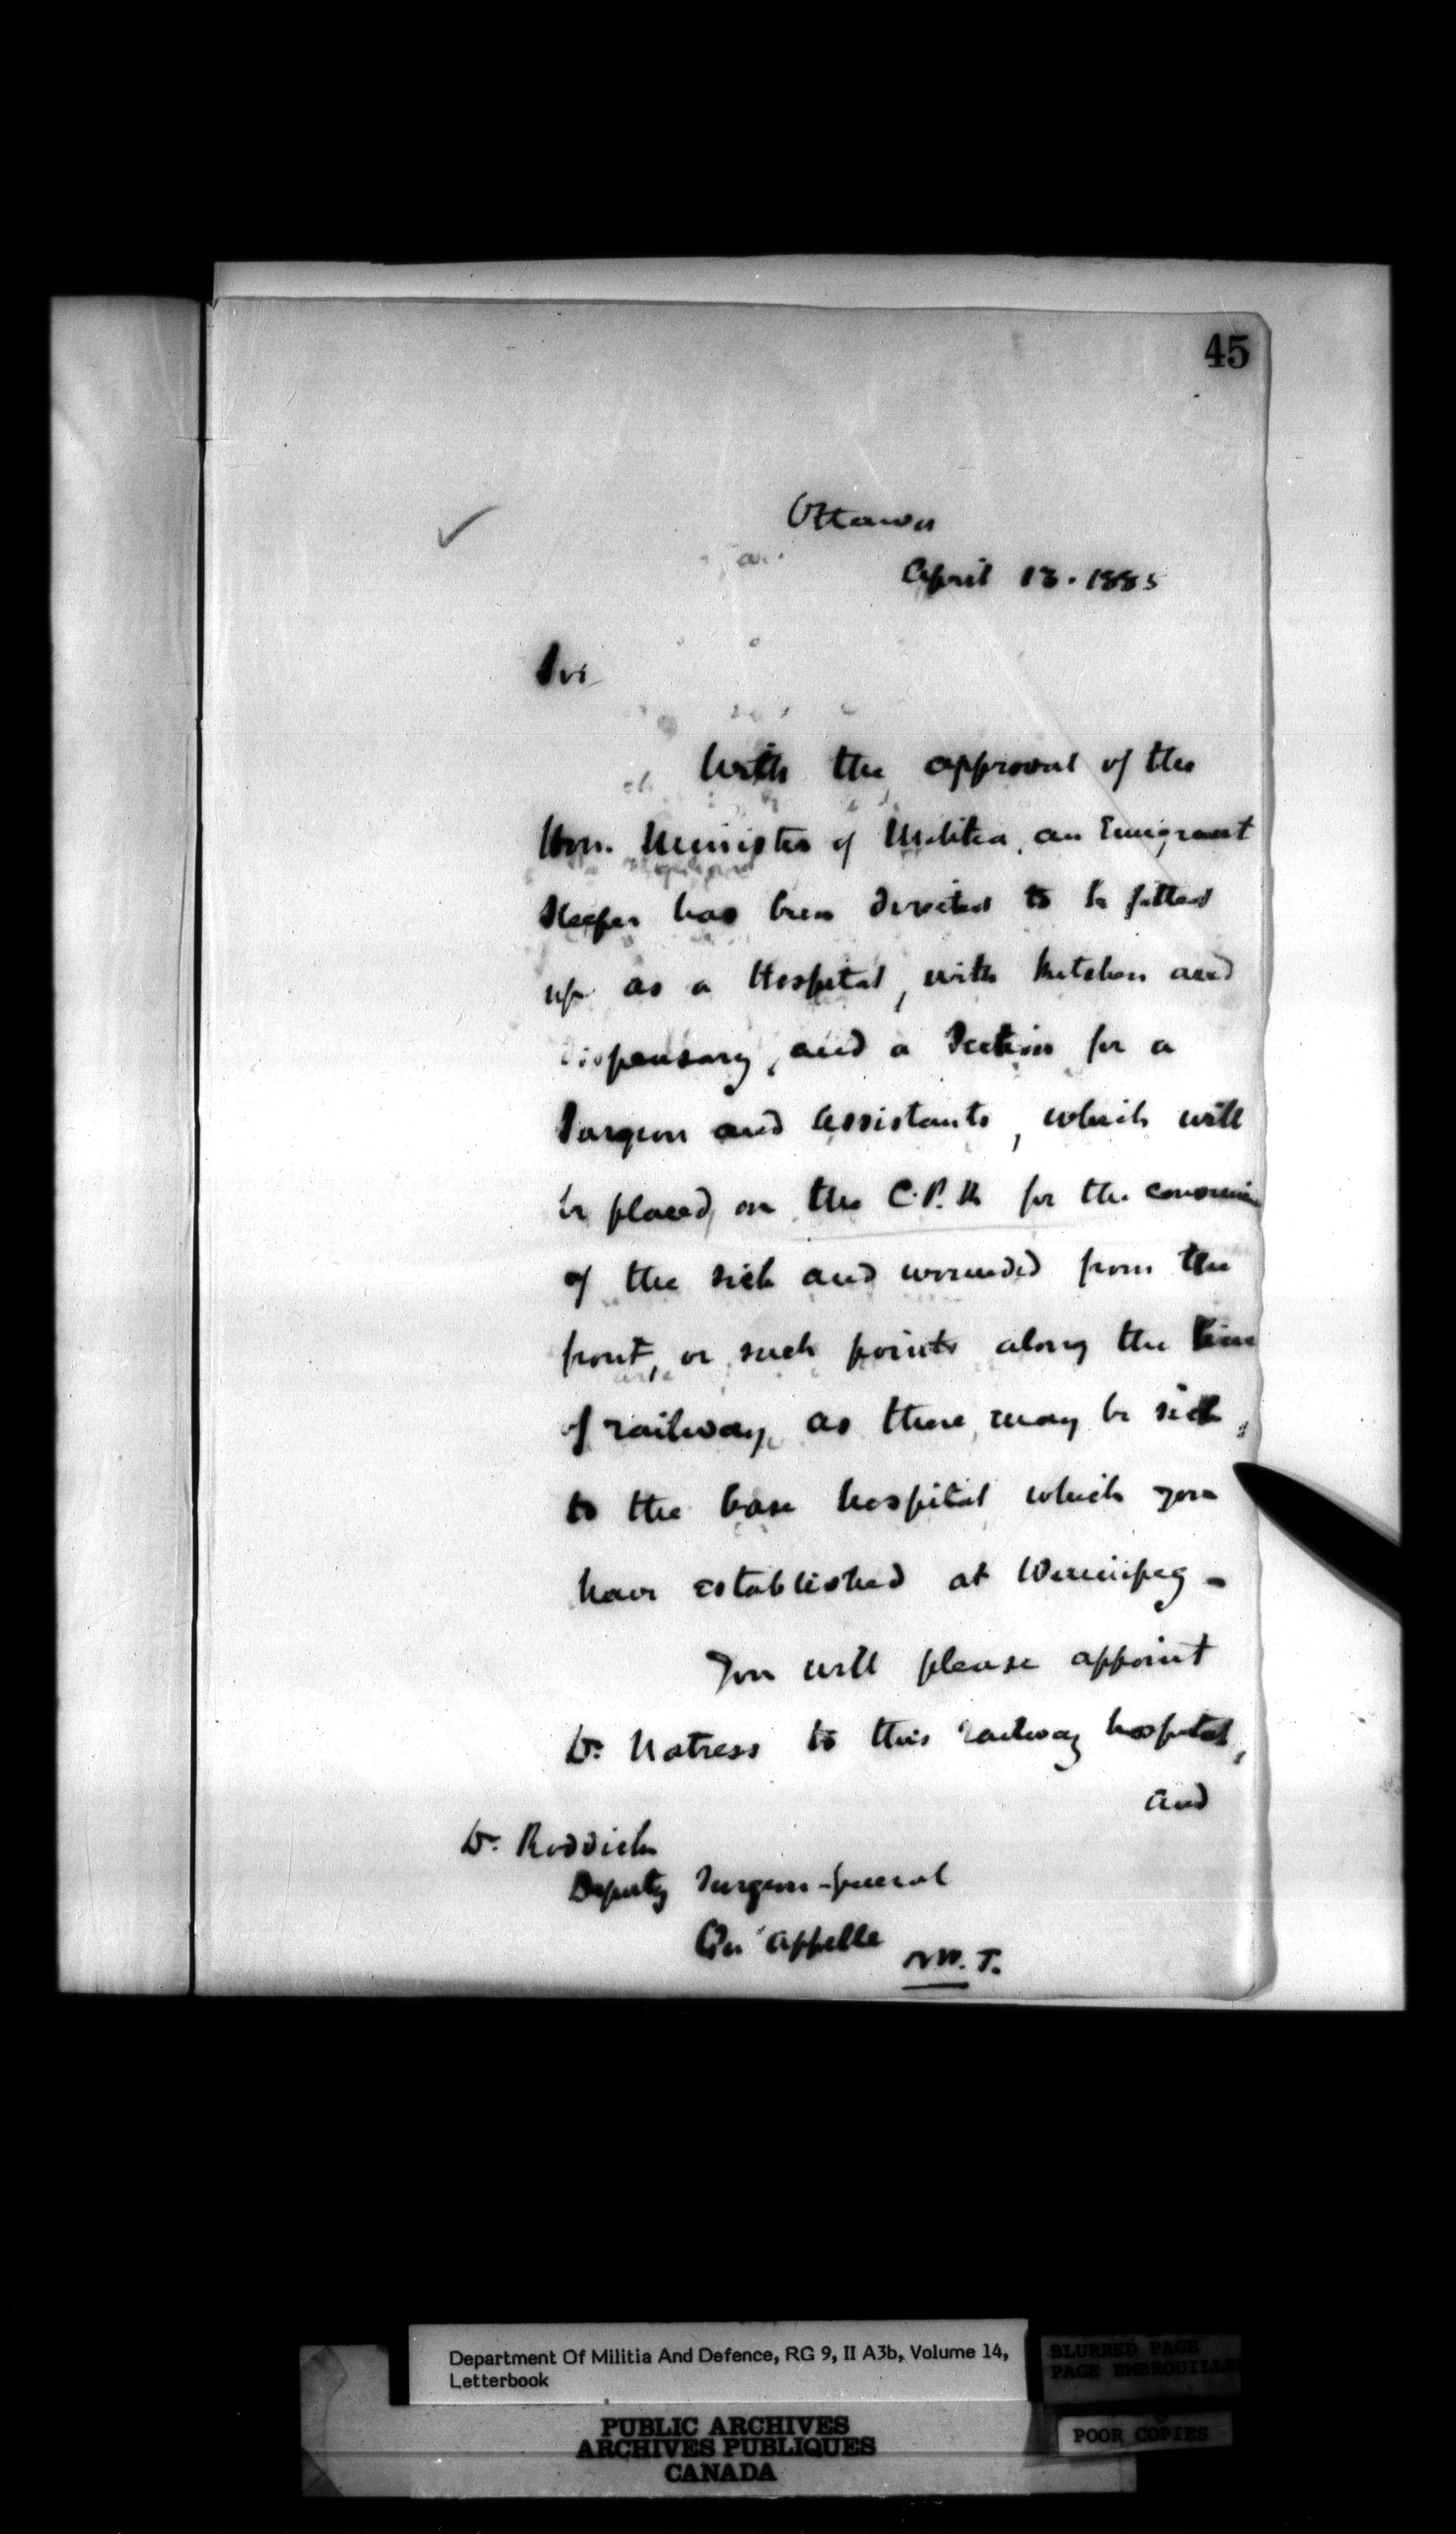 45
Ottawa
April 13. 1885
Sir
With the approval of the
Hon. Minister of Militia, an Emigrant
Sleeper has been directed to be fitted
up as a Hospital, with kitchen and
dispensary, and a Section for a
Surgeon and Assistants, which will
be placed on the C.P.R for the
of the sick and wounded from the
front, or such points along the line
of railway, as there may be sick,
to the base hospital which you
have established at Winnipeg -
You will please appoint
Dr. Natress to this railway hospital,
and
Dr. Roddick
Deputy Surgeon-General
Qu'appelle
N.W.T.
Department Of Militia And Defence, RG 9, II A3b, Volume 14,
Letterbook
BLURRED PAGE
PAGE EMBROUILLE
PUBLIC ARCHIVES
ARCHIVES PUBLIQUES
CANADA
POOR COPIES